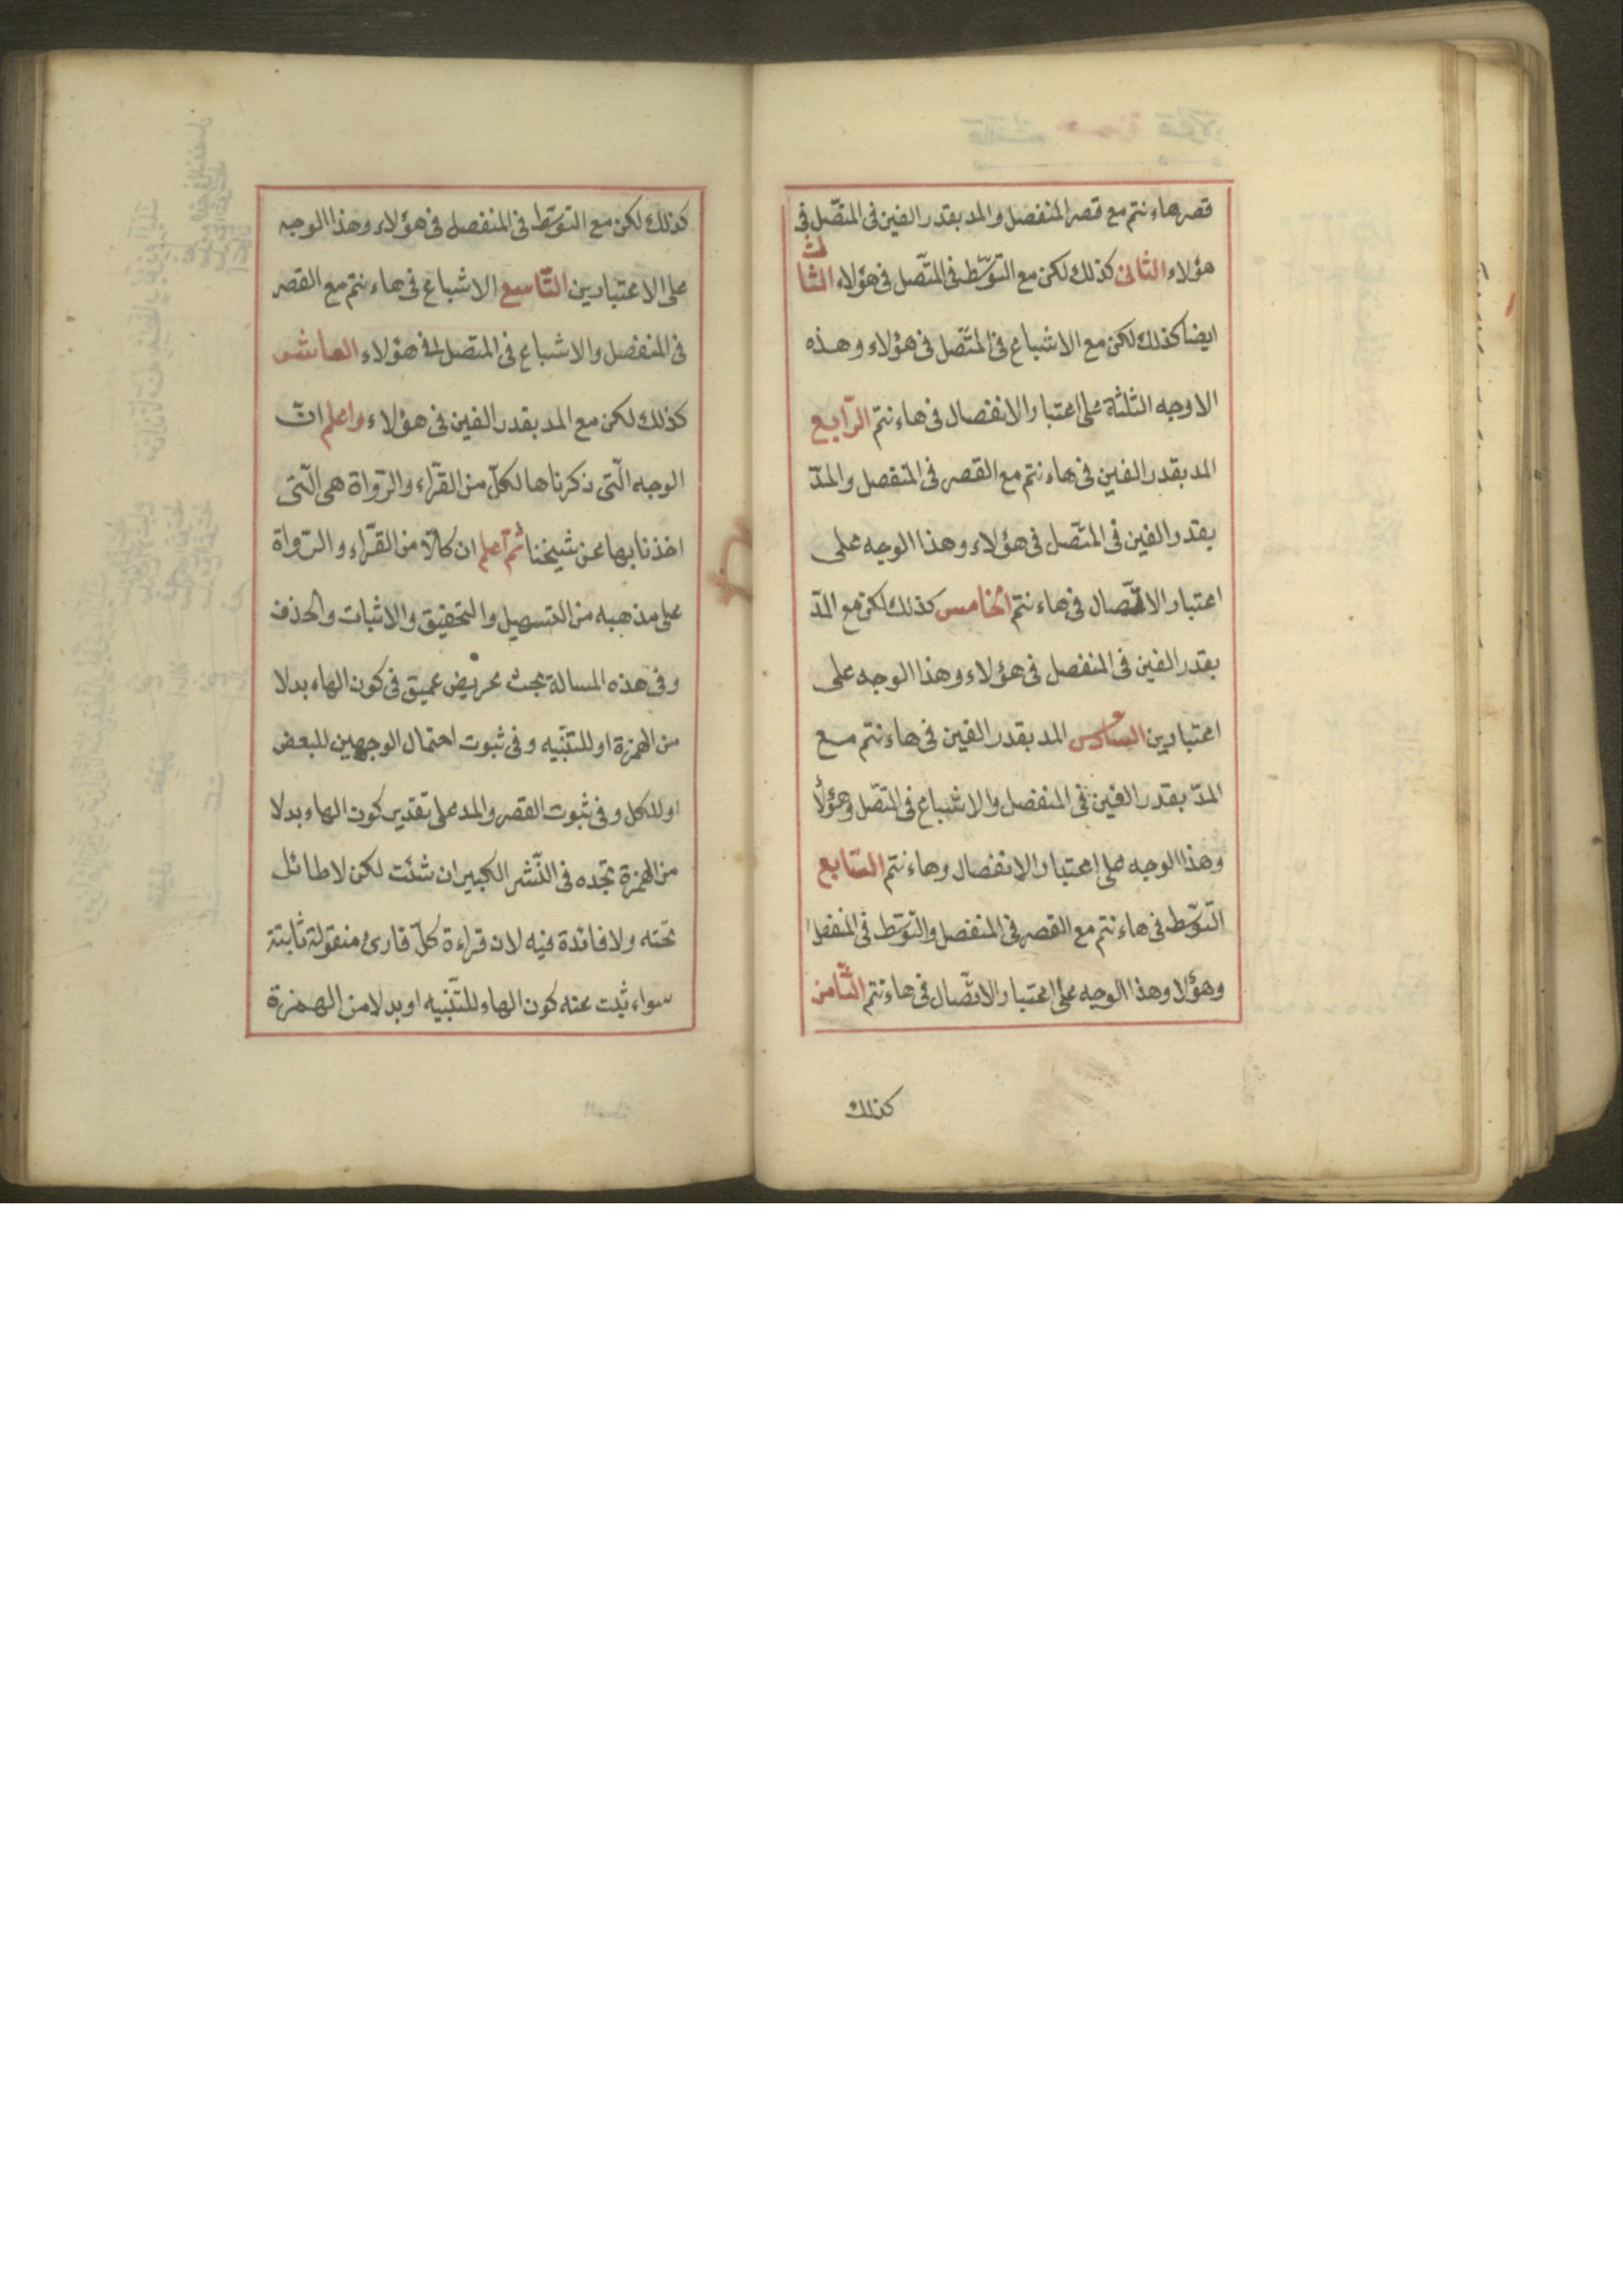 قصر هاءنتم مع قصر المنفصل والمد بقدر الفين فى المتّصل فى
هؤلاء الثانى كذلك لكن مع التوسّط فى المتّصل فى هؤلاء الثالث
ايضا كذلك لكن مع الاشباع فى المتّصل فى هؤلاء وهذه
الاوجه الثلثة على اعتبار الانفصال فى هاءنتم الرّابع
المد بقدر الفين فى هاءنتم مع القصر فى المنفصل والمدّ
بقدر الفين فى المتّصل فى هؤلاء وهذا الوجه على
اعتبار الاتّصال فى هاءنتم الخامس كذلك لكن مع المدّ
بقدر الفين فى المنفصل فى هؤلاء وهذا الوجه على
اعتبارين السادس المد بقدر الفين فى هاءنتم مع
المدّ بقدر الفين فى المنفصل والاشباع فى المتّصل وهؤلأ
وهذا الوجه على اعتبار الانفصال وهاءنتم السّابع
التّوسّط فى هاءنتم مع القصر فى المنفصل والتّوسّط فى المنفصل
وهؤلا وهذا الوجه على اعتبار الاتّصال فى هاءنتم الثّامن
كذلك
كذلك لكن مع التوسّط فى المنفصل فى هؤلاء وهذا الوجه
على الاعتبارين التّاسع الاشباع فى هاءنتم مع القصر
فى المنفصل والاشباع فى المتصل فى هؤلاء العاشر
كذلك لكن مع المد بقدر الفين فى هؤلاء واعلم انّ
الوجه الّتى ذكرناها لكلّ من القرّاء والرّواة هى الّتى
اخذنا بها عن شيخنا ثم اعلم ان كلّا من القرّاء والرّواة
على مذهبه من التسهيل والتحقيق والاثبات والحذف
وفى هذه المسالة بحث عريض عميق فى كون الهاء بدلا
من الهمزة او للتنّبيه وفى ثبوت احتمال الوجهين للبعض
او للكل وفى ثبوت القصر والمد على تقدير كون الهاء بدلا
من الهمزة تجده فى النّشر الكبير ان شئت لكن لا طائل
تحته ولا فائدة فيه لان قراءة كلّ قارئ منقولة ثابتة
سواء ثبت عنه كون الهاء للتّنبيه او بدلا من الهمزة